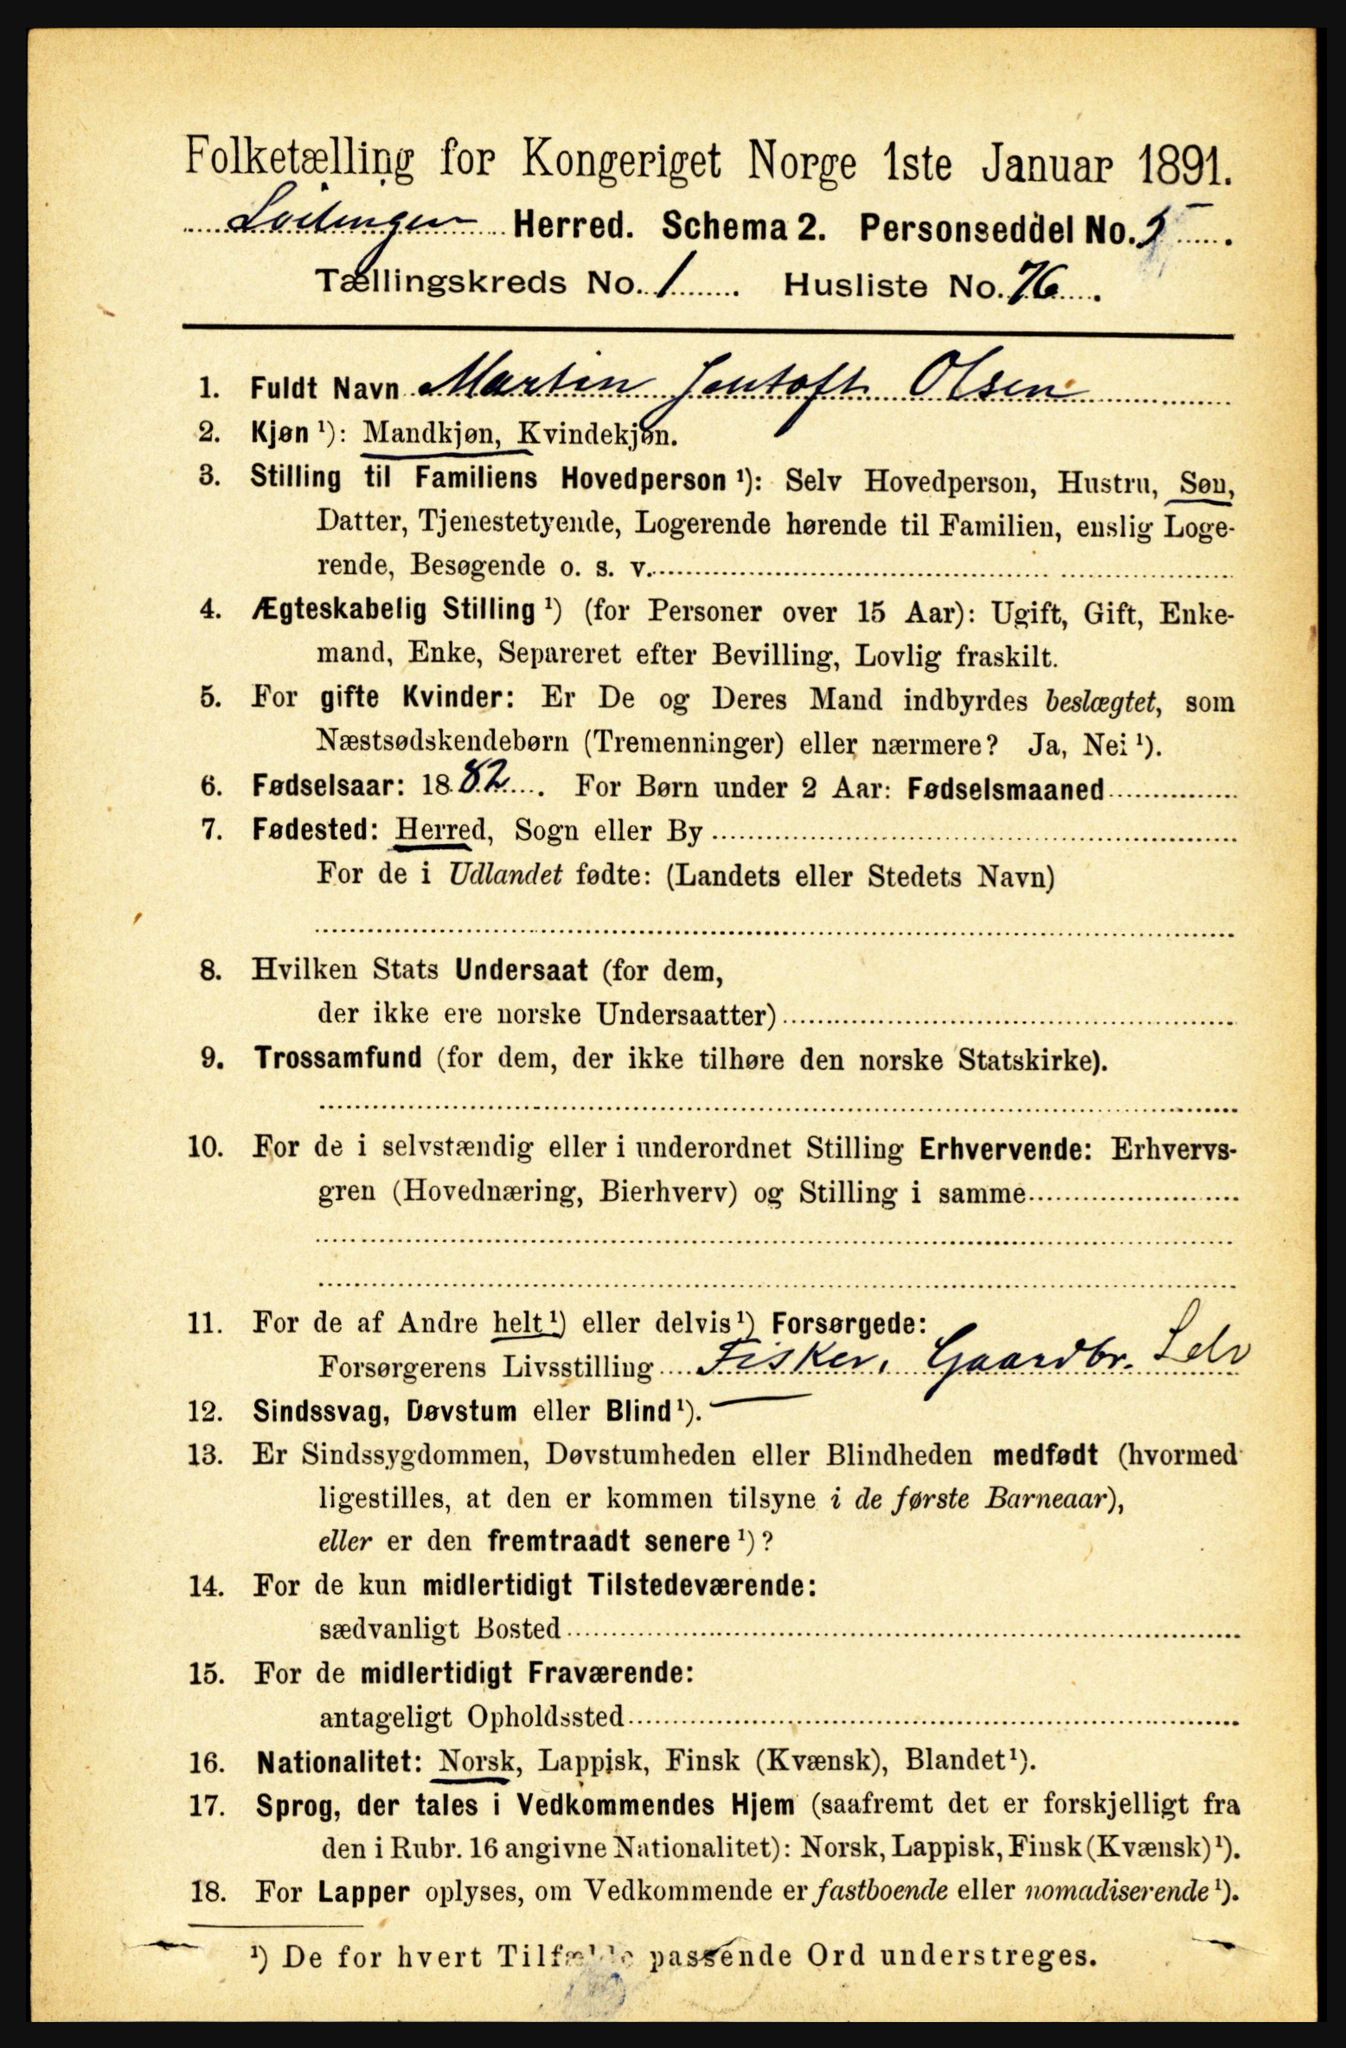 Folketælling for Kongeriget Norge 1ste Januar 1891.
Lødingen Herred. Schema 2. Personseddel No. 5.
Tællingskreds No. 1. Husliste No. 76.
1. Fuldt Navn Martin Jentoft Olsen
2. Kjøn ¹): Mandkjøn, Kvindekjøn.
3. Stilling til Familiens Hovedperson ¹): Selv Hovedperson, Hustru, Søn,
Datter, Tjenestetyende, Logerende hørende til Familien, enslig Loge-
rende, Besøgende o. s. v.
4. Ægteskabelig Stilling ¹) (for Personer over 15 Aar): Ugift, Gift, Enke-
mand, Enke, Separeret efter Bevilling, Lovlig fraskilt.
5. For gifte Kvinder: Er De og Deres Mand indbyrdes beslægtet, som
Næstsødskendebørn (Tremenninger) eller nærmere? Ja, Nei ¹).
6. Fødselsaar: 1882. For Børn under 2 Aar: Fødselsmaaned
7. Fødested: Herred, Sogn eller By
For de i Udlandet fødte: (Landets eller Stedets Navn)
8. Hvilken Stats Undersaat (for dem,
der ikke ere norske Undersaatter)
9. Trossamfund (for dem, der ikke tilhøre den norske Statskirke).
10. For de i selvstændig eller i underordnet Stilling Erhvervende: Erhvervs-
gren (Hovednæring, Bierhverv) og Stilling i samme
11. For de af Andre helt ¹) eller delvis ¹) Forsørgede:
Forsørgerens Livsstilling Fisker, Gaardbr. Selv
12. Sindssvag, Døvstum eller Blind ¹). —
13. Er Sindssygdommen, Døvstumheden eller Blindheden medfødt (hvormed
ligestilles, at den er kommen tilsyne i de første Barneaar),
eller er den fremtraadt senere ¹)?
14. For de kun midlertidigt Tilstedeværende:
sædvanligt Bosted
15. For de midlertidigt Fraværende:
antageligt Opholdssted
16. Nationalitet: Norsk, Lappisk, Finsk (Kvænsk), Blandet ¹).
17. Sprog, der tales i Vedkommendes Hjem (saafremt det er forskjelligt fra
den i Rubr. 16 angivne Nationalitet): Norsk, Lappisk, Finsk (Kvænsk) ¹).
18. For Lapper oplyses, om Vedkommende er fastboende eller nomadiserende ¹).
¹) De for hvert Tilfælde passende Ord understreges.